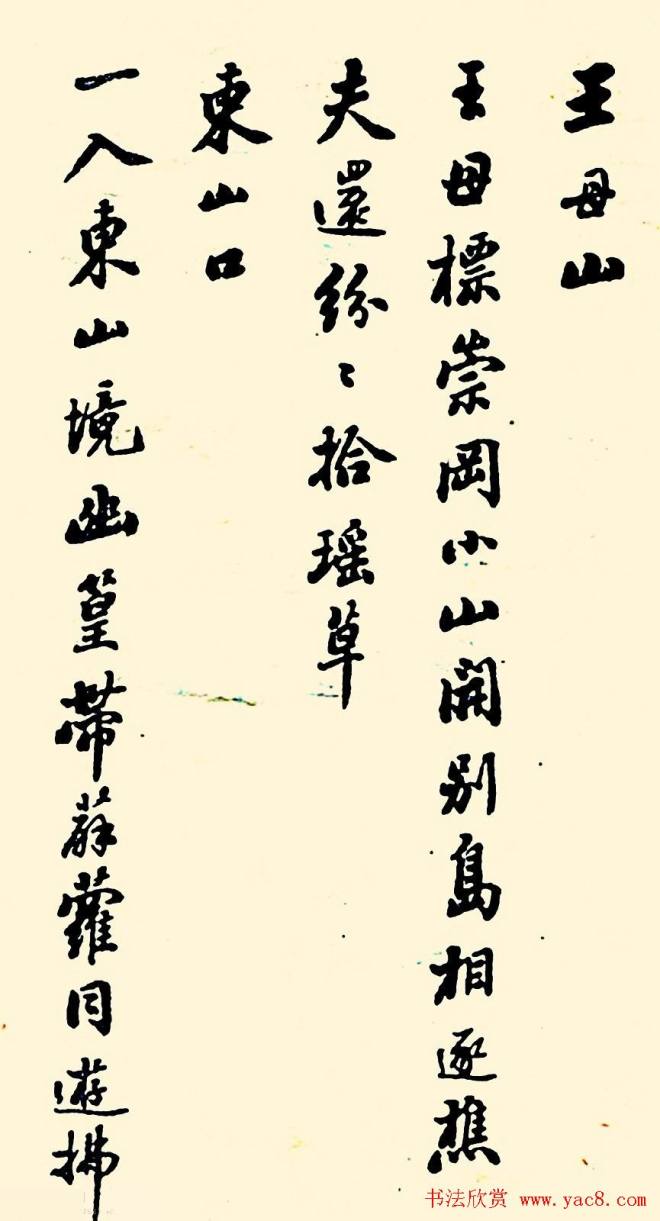 王母山
王母標崇岡小山開別島相逐樵
夫還紛〻拾瑶草
東山口
一入東山境幽篁帶薜蘿同遊拂
书法欣赏 www.yac8.com